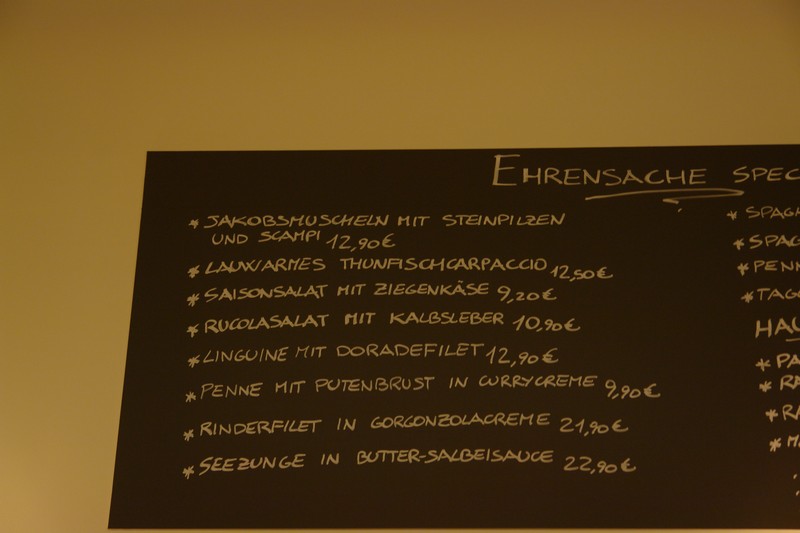 EHRENSACHE SPEC
* JAKOBSMUSCHELN MIT STEINPILZEN
UND SCAMPI 12,90€
* LAUWARMES THUNFISCHCARPACCIO 12,50€
* SAISONSALAT MIT ZIEGENKÄSE 9,20€
* RUCOLASALAT MIT KALBSLEBER 10,90€
* LINGUINE MIT DORADEFILET 12,90€
* PENNE MIT PUTENBRUST IN CURRYCREME 9,90€
* RINDERFILET IN GORGONZOLACREME 21,90€
* SEEZUNGE IN BUTTER-SALBEISAUCE 22,90€
* SPAGH
* SPAG
* PENN
* TAG
HAU
* PA
* RA
* RA